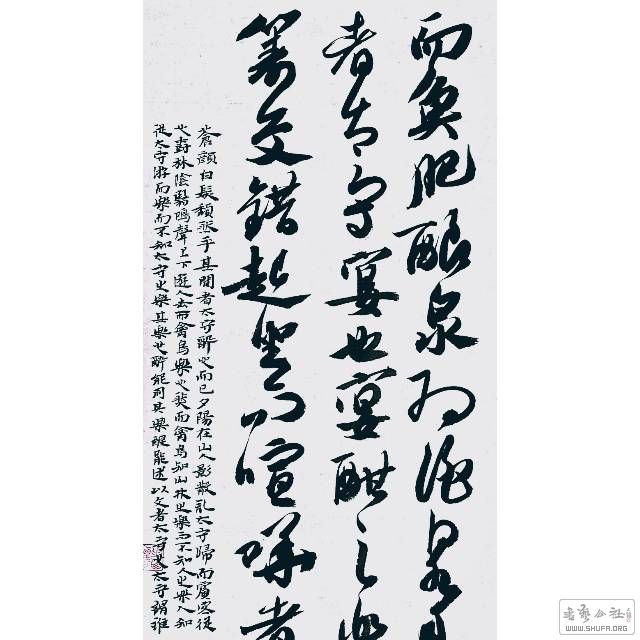 而魚肥釀泉为酒泉
者太守宴也宴酣之樂
籌交錯起坐而喧嘩者
蒼顏白髮頹然乎其間者太守醉也而已夕陽在山人影散亂太守歸而賓客從
也樹林陰翳鳴聲上下遊人去而禽鳥樂也然而禽鳥知山林之樂而不知人之樂人知
從太守游而樂而不知太守之樂其樂也醉能同其樂醒能述以文者太守也太守謂誰
書藝公社
WWW.SHUFA.ORG